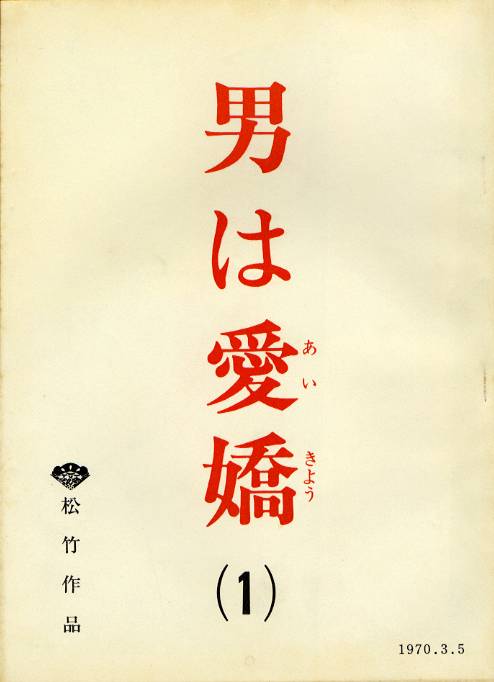 男は愛嬌
あい
きよう
(1)
松竹作品
1970.3.5